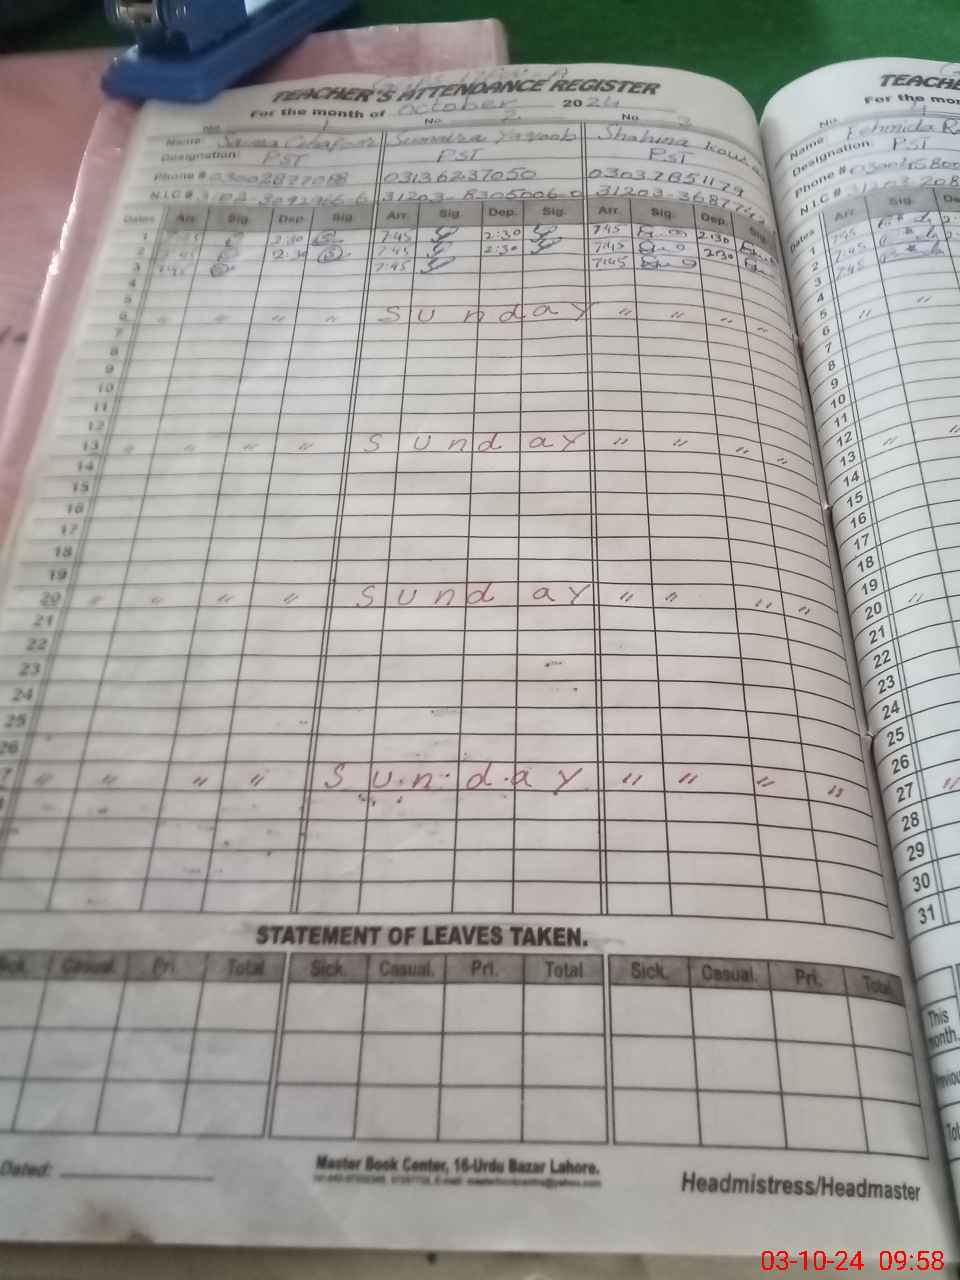 TEACHER'S ATTENDANCE REGISTER
For the month of October 2024
No. 1 No. 2 No. 3
Name: Saima Sumaira Yaqoob Shahina
Designation: PST PST PST
Phone # 03136237050 03037851179
N.I.C # 31203-8305006-0
Dates Arr. Sig. Dep. Sig. Arr. Sig. Dep. Sig. Arr. Sig. Dep. Sig.
1 7:45 2:30 7:45 2:30 7:45 2:30
2 7:45 2:30 7:45 2:30 7:45 2:30
3 7:45 7:45 7:45
4
5
6 " " " " Sunday " " " "
7
8
9
10
11
12
13 " " " " Sunday " " " "
14
15
16
17
18
19
20 " " " " Sunday " " " "
21
22
23
24
25
26
7 " " " " Sunday " " " "
STATEMENT OF LEAVES TAKEN.
Sick. Casual. Pri. Total Sick. Casual. Pri. Total Sick. Casual. Pri. Total
Dated:
Master Book Center, 16-Urdu Bazar Lahore.
Headmistress/Headmaster
TEACHE
For the mon
No. 4
Name Fehmida
Designation: PST
Phone #
N.I.C #
Dates Arr. Sig. De
1 7:45
2 7:45
3 7:45
4
5 "
6
7
8
9
10
11
12 "
13
14
15
16
17
18
19 "
20
21
22
23
24
25
26
27 "
28
29
30
31
This
month.
03-10-24 09:58